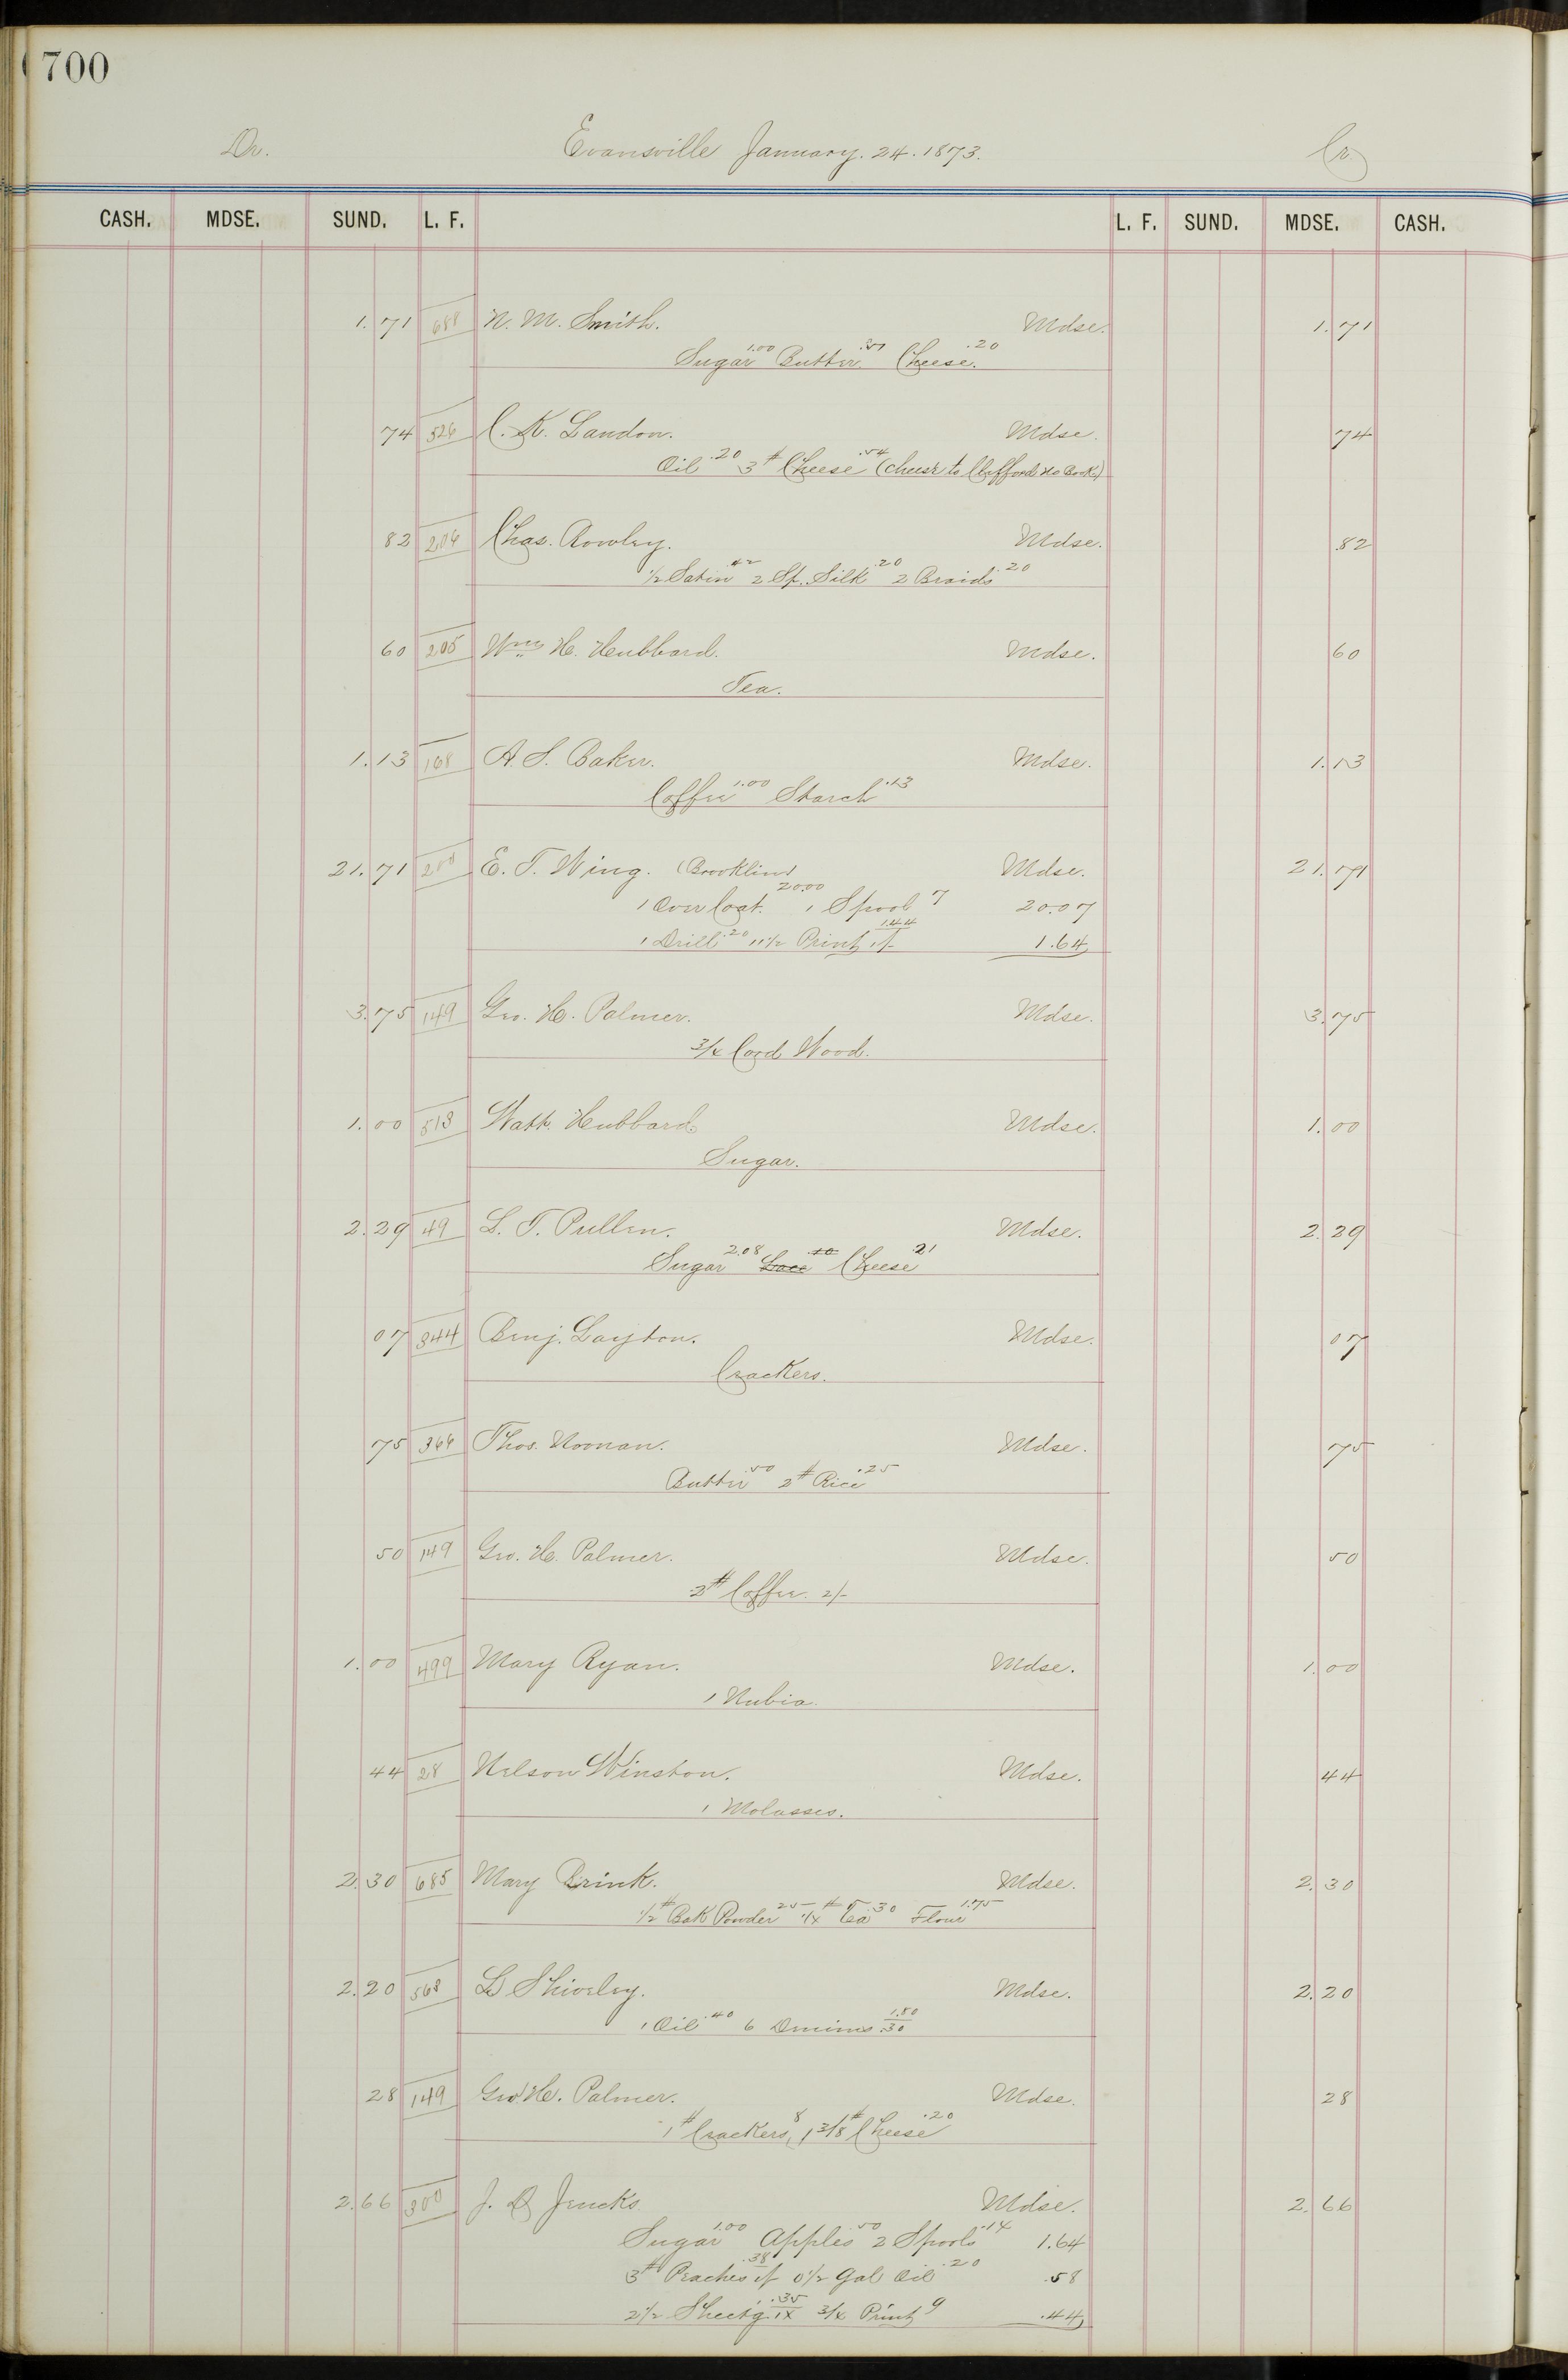 700
Dr. Evansville January. 24. 1873. Cr
CASH. MDSE. SUND. L. F. L. F. SUND. MDSE. CASH.
1.71 688 N. M. Smith. Mdse. 1.71
Sugar 1.00 Butter .51 Cheese. .20
74 526 C. K. Landon. Mdse. 74
Oil .20 3# Cheese .54 (cheese to Clifford no Book)
82 206 Chas. Rowley. Mdse. .82
1/2 Satin .42 2 Sp. Silk .20 2 Braids .20
60 205 Wm H. Hubbard. Mdse. 60
Tea.
1.13 168 A. S. Baker. Mdse. 1.13
Coffee 1.00 Starch .13
21.71 200 E. T. Wing. (Brooklin) Mdse. 21.71
1 Over Coat. 20.00 1 Spool 7 20.07
1 Drill .20 11 1/2 Print 1/- 1.44 1.64
3.75 149 Geo. H. Palmer. Mdse. 3.75
3/4 Cord Wood.
1.00 513 Watt. Hubbard. Mdse. 1.00
Sugar.
2.29 49 L. T. Pullen. Mdse. 2.29
Sugar 2.08 Lace .10 Cheese 21
07 344 Benj. Layton. Mdse. 07
Crackers.
75 366 Thos. Noonan. Mdse. 75
Butter .50 2# Rice .25
50 149 Geo. H. Palmer. Mdse. 50
2# Coffee. 2/-
1.00 499 Mary Ryan. Mdse. 1.00
1 Nubia.
44 28 Nelson Winston. Mdse. 44
1 Molasses.
2.30 685 Mary Brink. Mdse. 2.30
1/2# Bak Powder 25 1/4# Tea .30 Flour 1.75
2.20 568 L Shiveley. Mdse. 2.20
1 Oil .40 6 Denims .30 1.80
28 149 Geo. H. Palmer. Mdse. 28
1# Crackers, 8 1 3/8# Cheese .20
2.66 300 J. D Jencks Mdse. 2.66
Sugar 1.00 Apples .50 2 Spools .14 1.64
3# Peaches 1/- .38 0 1/2 Gal Oil .20 .58
2 1/2 Sheet'g. 14 .35 3/4 Print 9 .44